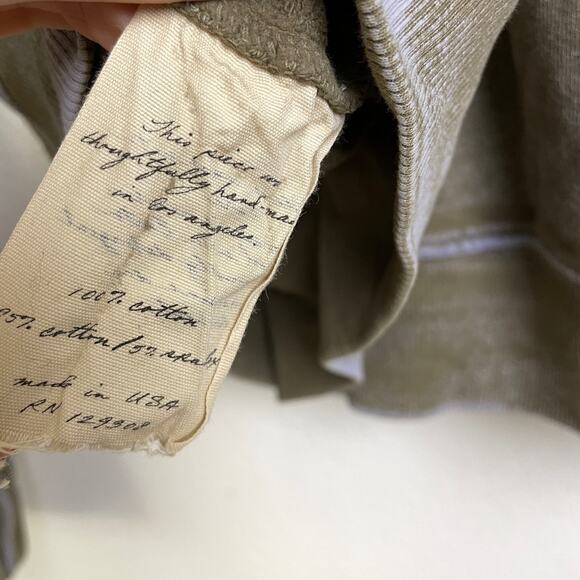 This piece was
thoughtfully hand-made
in los angeles.
100% cotton
95% cotton / 5%
made in USA
RN 129308